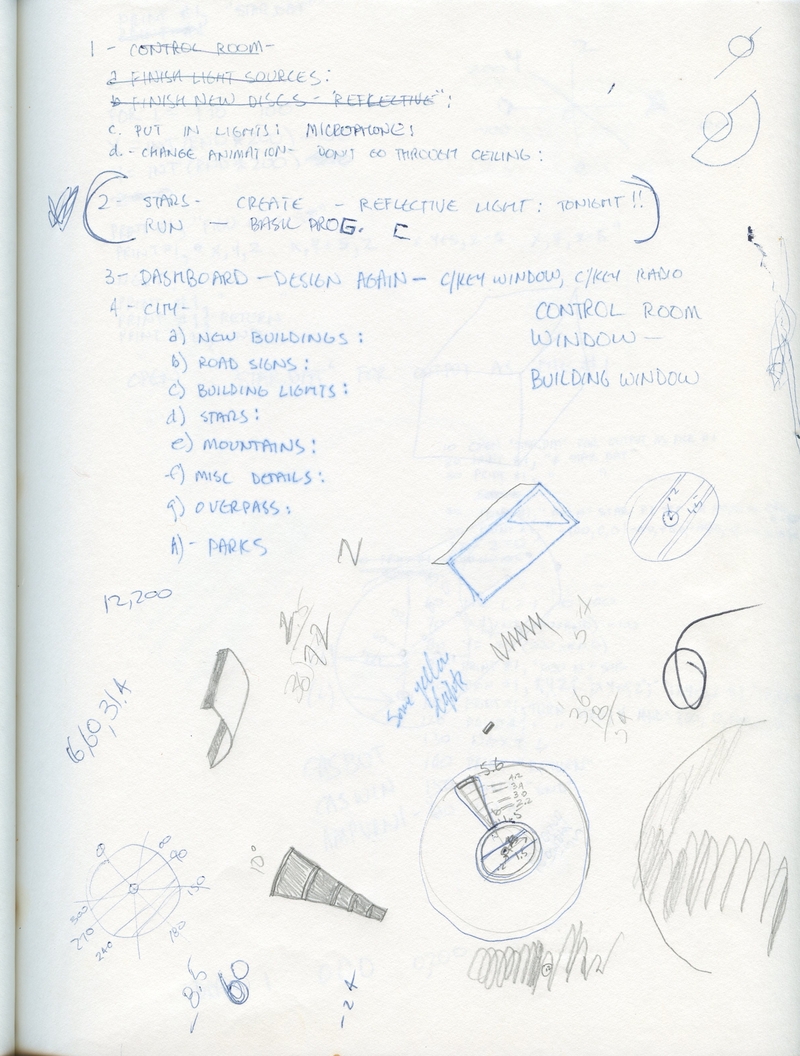 1 - CONTROL ROOM -
a FINISH LIGHT SOURCES:
b FINISH NEW DISCS - "REFLECTIVE":
c. PUT IN LIGHTS: MICROPHONE:
d. - CHANGE ANIMATION - DON'T GO THROUGH CEILING:
2 - STARS - CREATE - REFLECTIVE LIGHT: TONIGHT!!
RUN — BASIC PROG. C
3 - DASHBOARD - DESIGN AGAIN - C/KEY WINDOW, C/KEY RADIO
4 - CITY -
a) NEW BUILDINGS:
b) ROAD SIGNS:
c) BUILDING LIGHTS:
d) STARS:
e) MOUNTAINS:
f) MISC DETAILS:
g) OVERPASS:
h) - PARKS
CONTROL ROOM
WINDOW —
BUILDING WINDOW
1.5
N
12,200
Some yellow
lights
5.6
4.2
3.4
3.0
2.2
1.5
10°
90
180
270
240
300
60